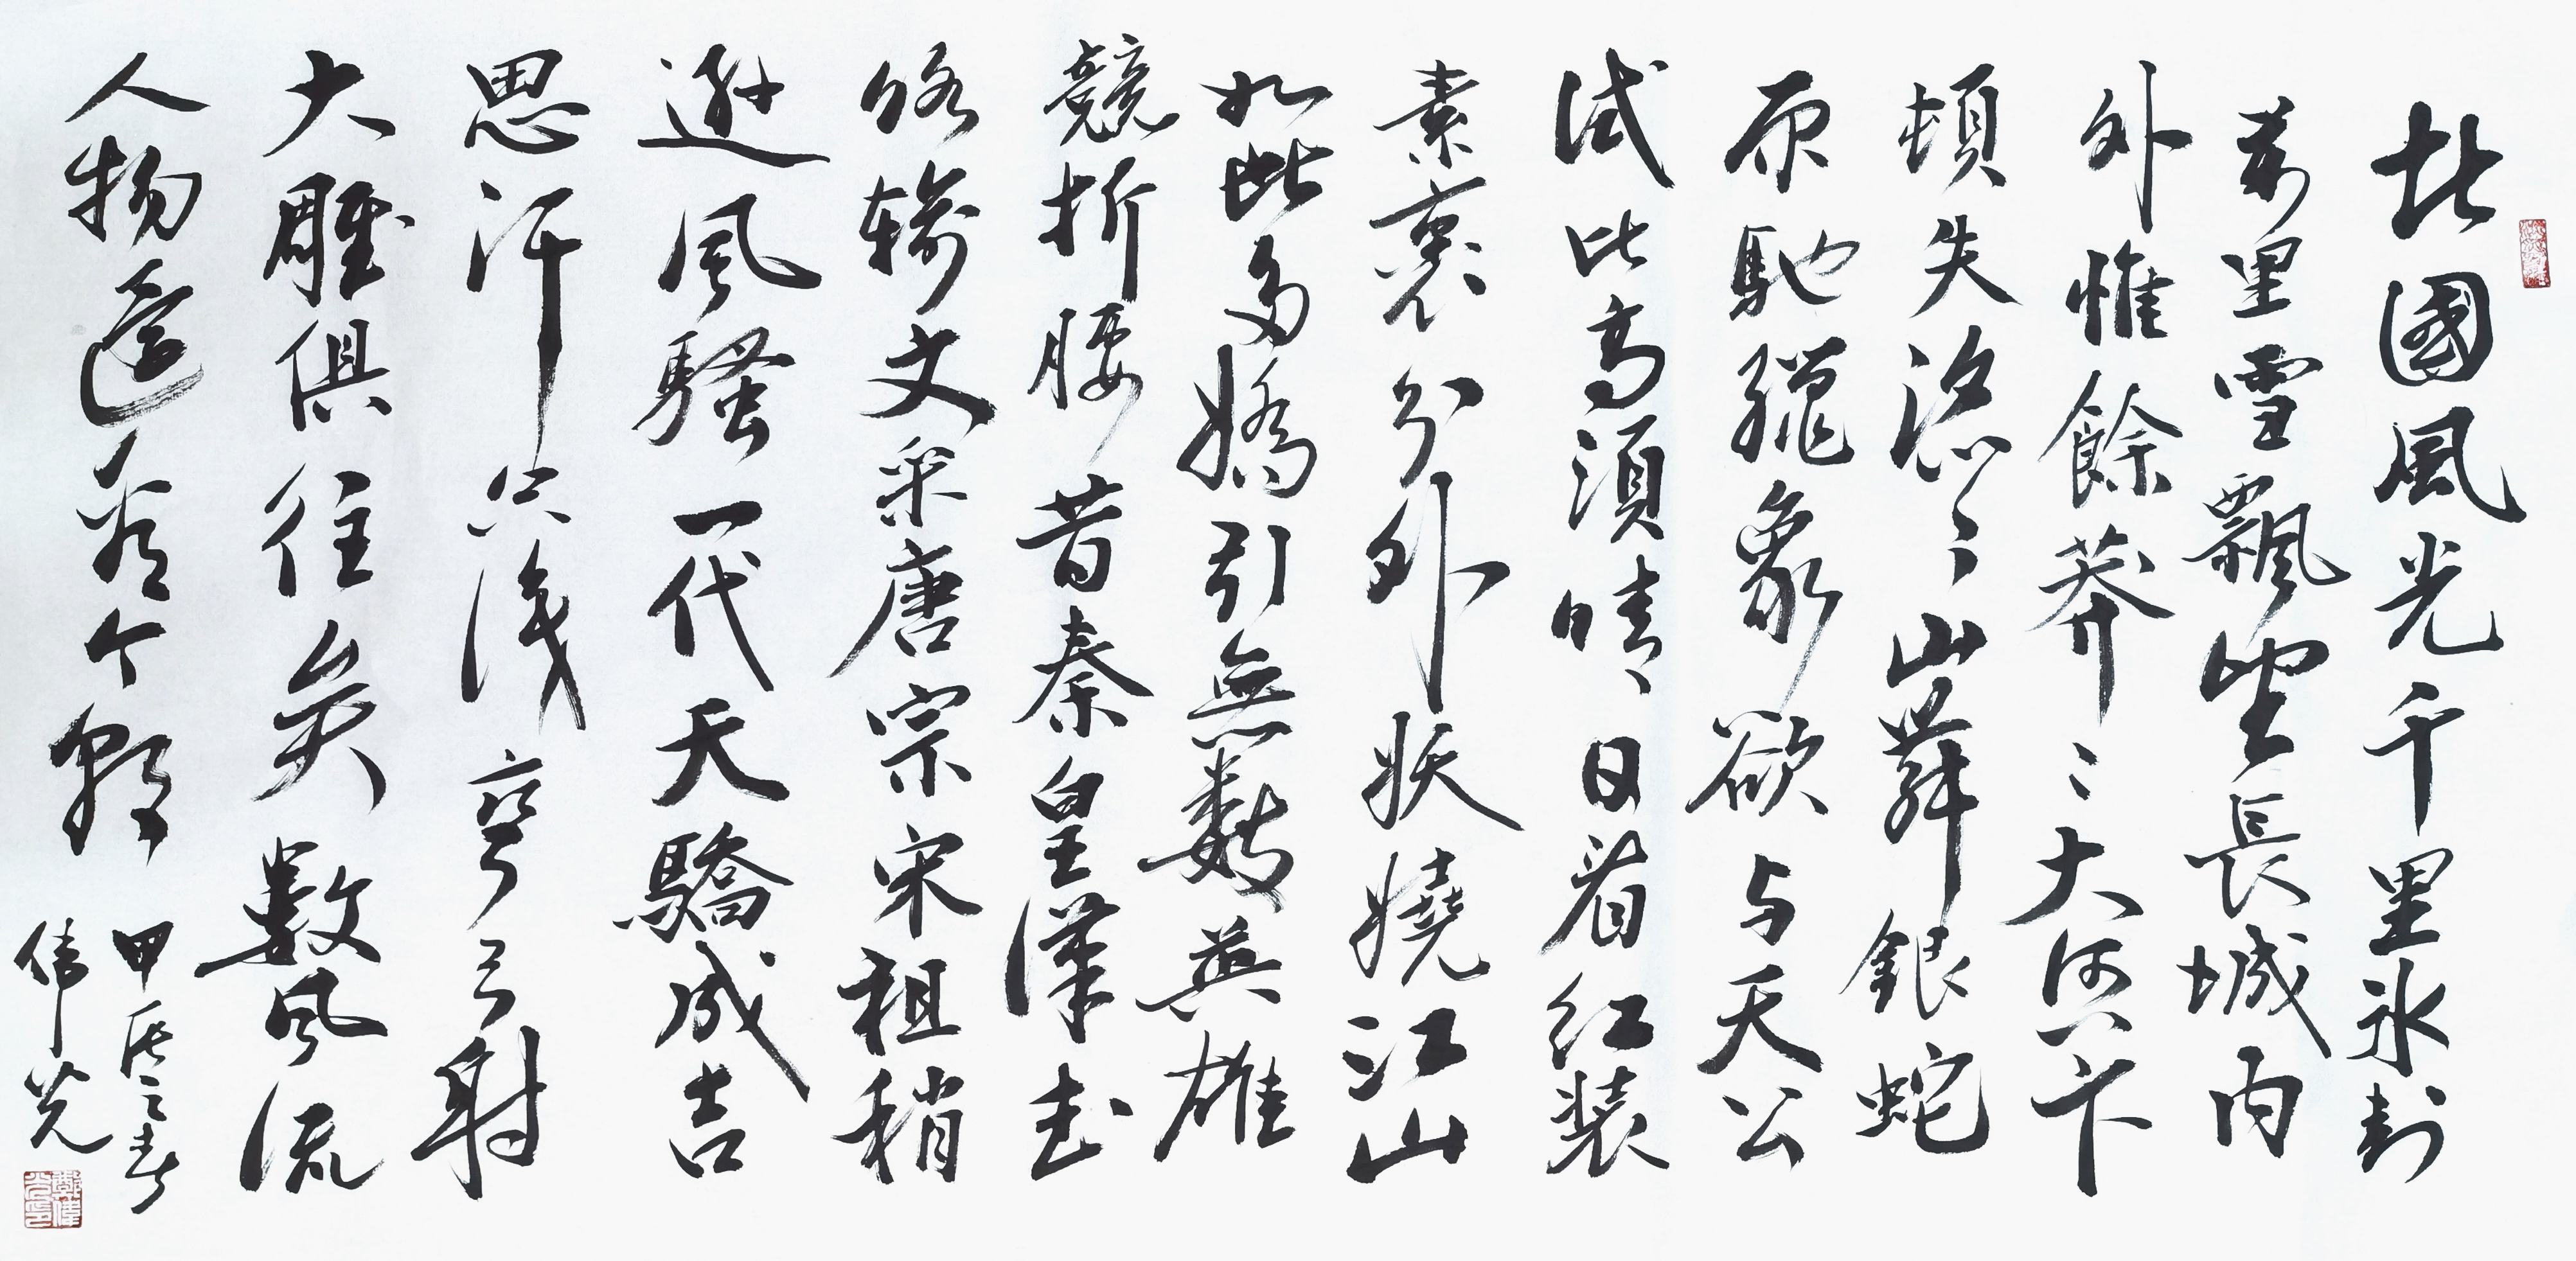 北國風光千里冰封
萬里雪飄望長城内
外惟餘莽〻大河上下
頓失滔〻山舞銀蛇
原馳臘象欲与天公
试比高須晴日看红装
素裹分外妖嬈江山
如此多嬌引無數英雄
競折腰昔秦皇漢武
略輸文采唐宗宋祖稍
遜風騷一代天驕成吉
思汗只识彎弓射
大雕俱往矣数风流
人物還看今朝
甲辰之春
偉光
鄭偉光印